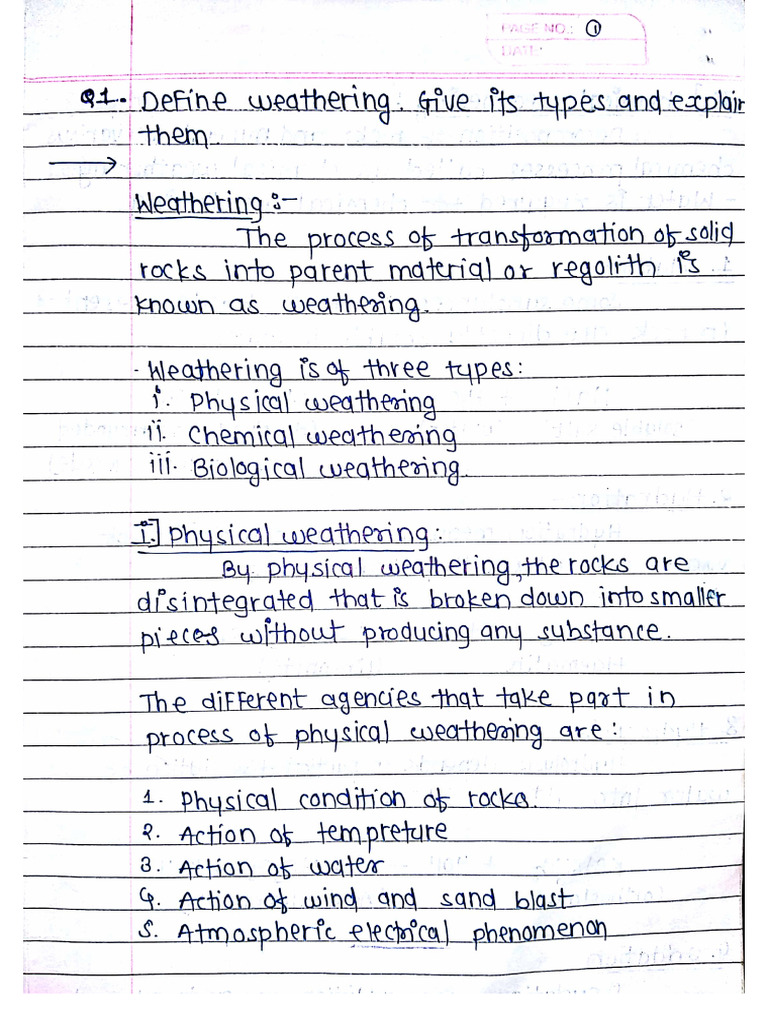 PAGE NO.: 1
DATE:
Q1. Define weathering. Give its types and explain
them.
→
Weathering :-
The process of transformation of solid
rocks into parent material or regolith is
known as weathering.
· Weathering is of three types:
i. Physical weathering
ii. Chemical weathering
iii. Biological weathering.
I.] Physical weathering:
By physical weathering, the rocks are
disintegrated that is broken down into smaller
pieces without producing any substance.
The different agencies that take part in
process of physical weathering are:
1. Physical condition of rocks.
2. Action of tempreture
3. Action of water
4. Action of wind and sand blast
5. Atmospheric electrical phenomenon